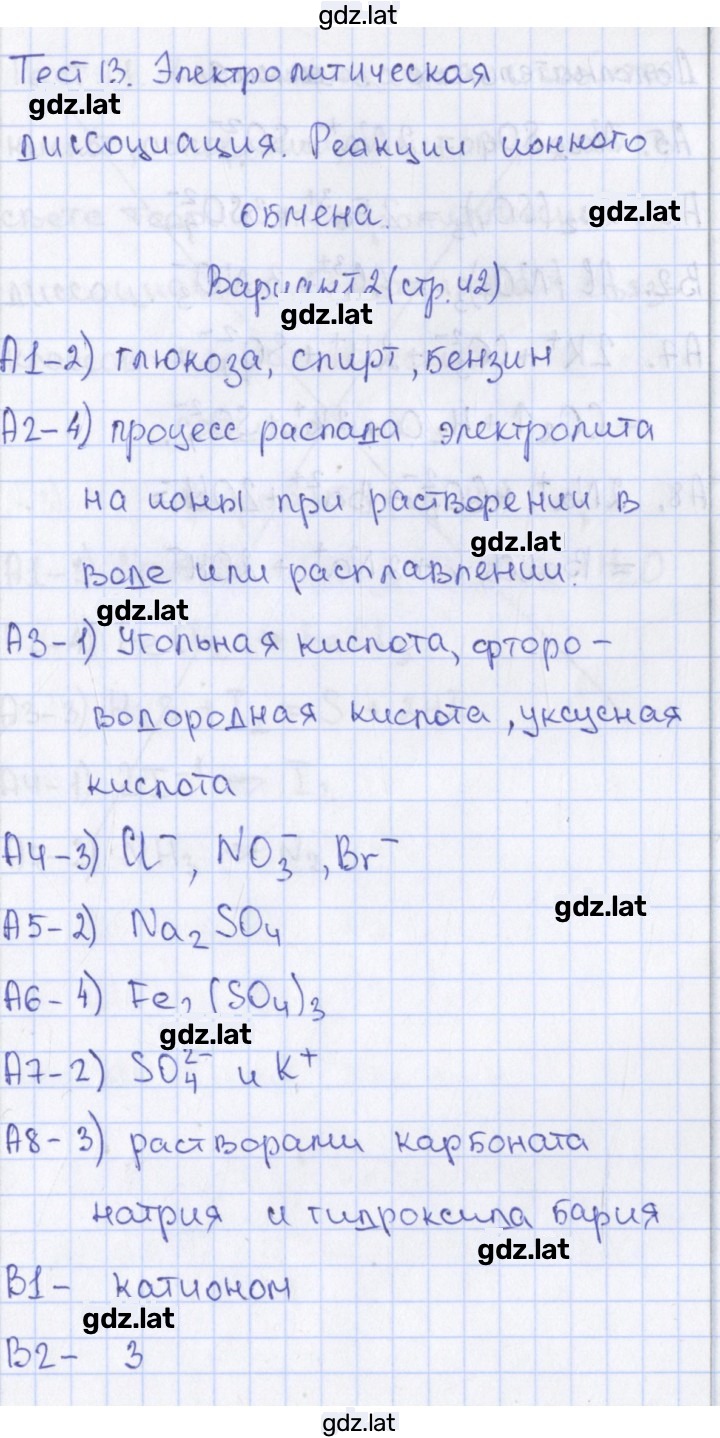 gdz.lat
Тест 13. Электролитическая
gdz.lat
диссоциация. Реакции ионного
обмена. gdz.lat
Вариант 2 (стр. 42)
gdz.lat
А1-2) глюкоза, спирт, бензин
А2-4) процесс распада электролита
на ионы при растворении в
gdz.lat
воде или расплавлении.
gdz.lat
А3-1) Угольная кислота, фторо-
водородная кислота, уксусная
кислота
А4-3) Cl⁻, NO₃⁻, Br⁻
gdz.lat
А5-2) Na₂SO₄
А6-4) Fe₂(SO₄)₃
gdz.lat
А7-2) SO₄²⁻ и K⁺
А8-3) растворами карбоната
натрия и гидроксида бария
gdz.lat
В1- катионом
gdz.lat
В2- 3
gdz.lat